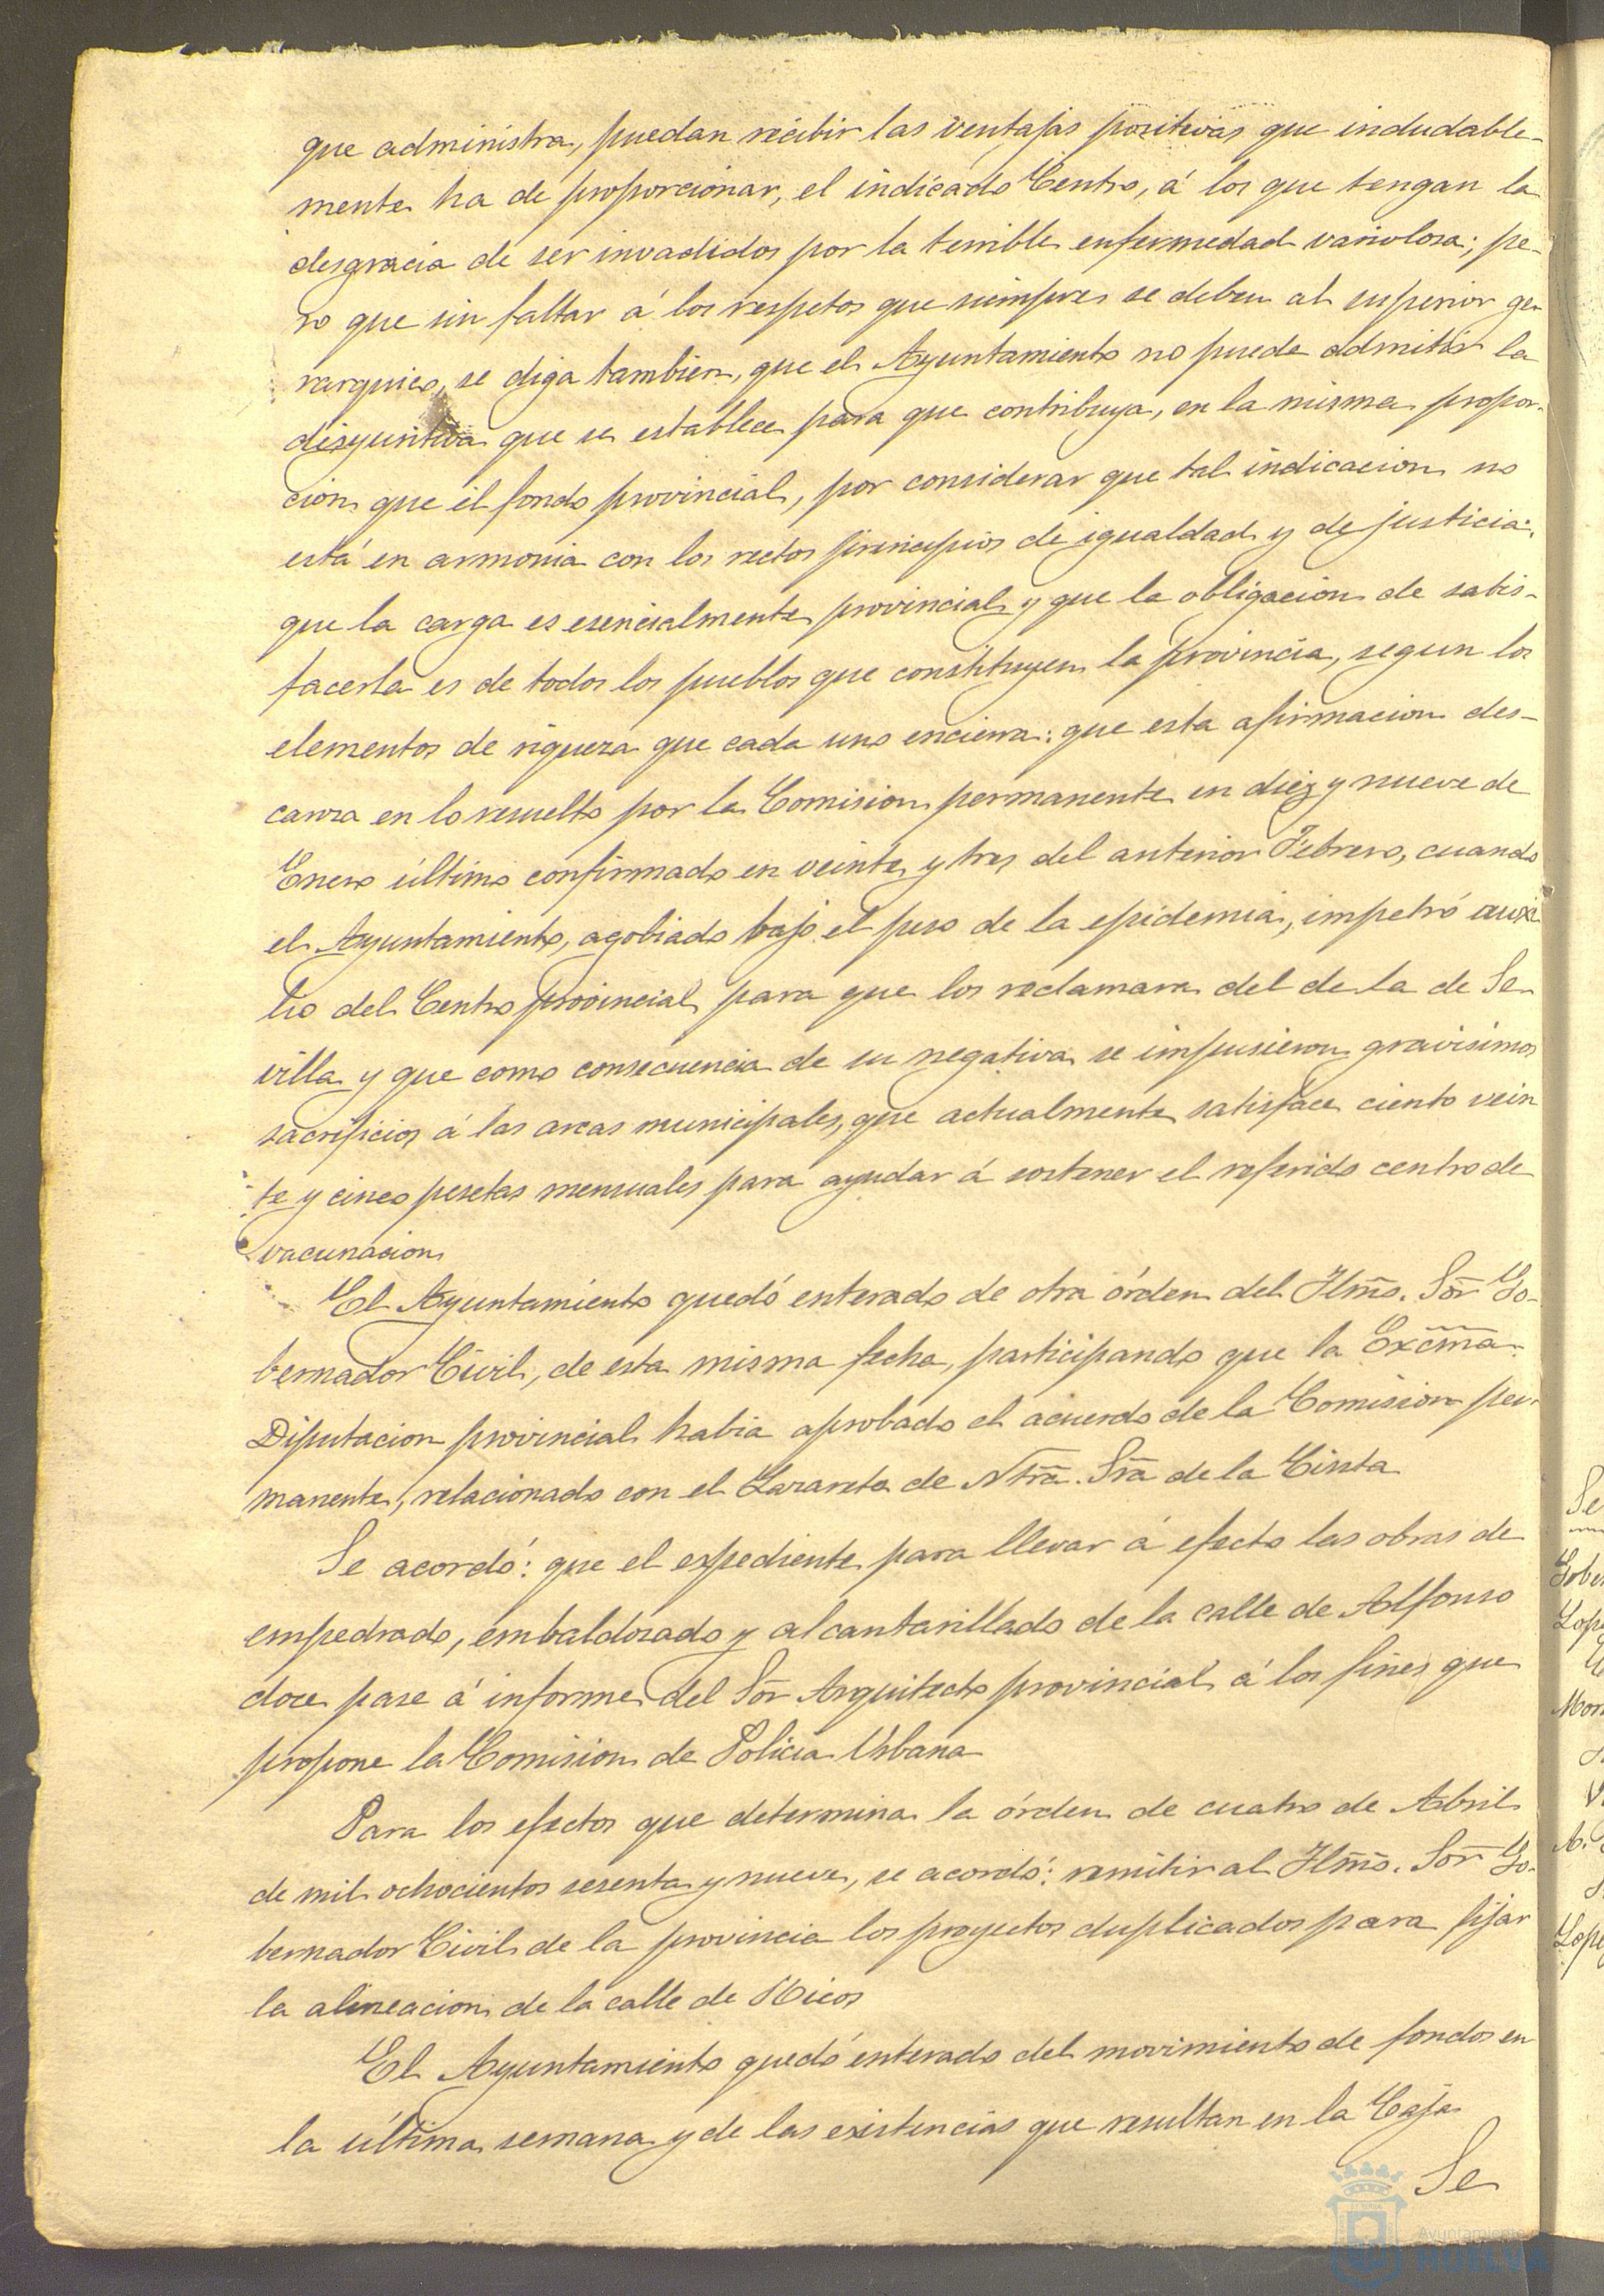 que administra, puedan recibir las ventajas positivas que indudable-
mente ha de proporcionar, el indicado Centro, á los que tengan la
desgracia de ser invadidos por la terrible enfermedad variolosa; pe-
ro que sin faltar á los respetos que siempre se deben al superior ge-
rarquico, se diga tambien, que el Ayuntamiento no puede admitir la
disyuntiva que se establece para que contribuya, en la misma propor-
cion que el fondo provincial, por considerar que tal indicacion no
está en armonia con los rectos principios de igualdad y de justicia:
que la carga es esencialmente provincial y que la obligacion de satis-
facerla es de todos los pueblos que constituyen la provincia, segun los
elementos de riqueza que cada uno encierra: que esta afirmacion des-
canza en lo resuelto por la Comision permanente en diez y nueve de
Enero último confirmado en veinte y tres del anterior Febrero, cuando
el Ayuntamiento, agobiado bajo el peso de la epidemia, impetró auxi
lio del Centro provincial para que los reclamara del de la de Se-
villa y que como consecuencia de su negativa se impusieron gravisimos
sacrificios á las arcas municipales, que actualmente satisface ciento vein
te y cinco pesetas mensuales para ayudar á sostener el referido centro de
vacunacion
El Ayuntamiento quedó enterado de otra órden del Ilmo. Sor Go-
bernador Civil, de esta misma fecha, participando que la Excma.
Diputacion provincial habia aprobado el acuerdo de la Comision per-
manente, relacionado con el Lazareto de Ntra. Sra de la Cinta
Se acordó: que el expediente para llevar á efecto las obras de
empedrado, embaldosado y alcantarillado de la calle de Alfonso
doce pase á informe del Sor Arquitecto provincial á los fines que
propone la Comision de Policia Urbana
Para los efectos que determina la órden de cuatro de Abril
de mil ochocientos sesenta y nueve, se acordó: remitir al Ilmo. Sor Go-
bernador Civil de la provincia los proyectos duplicados para fijar
la alineacion de la calle de Ricos
El Ayuntamiento quedó enterado del movimiento de fondos en
la última semana y de las existencias que resultan en la Caja
Se
Ayuntamiento
HUELVA